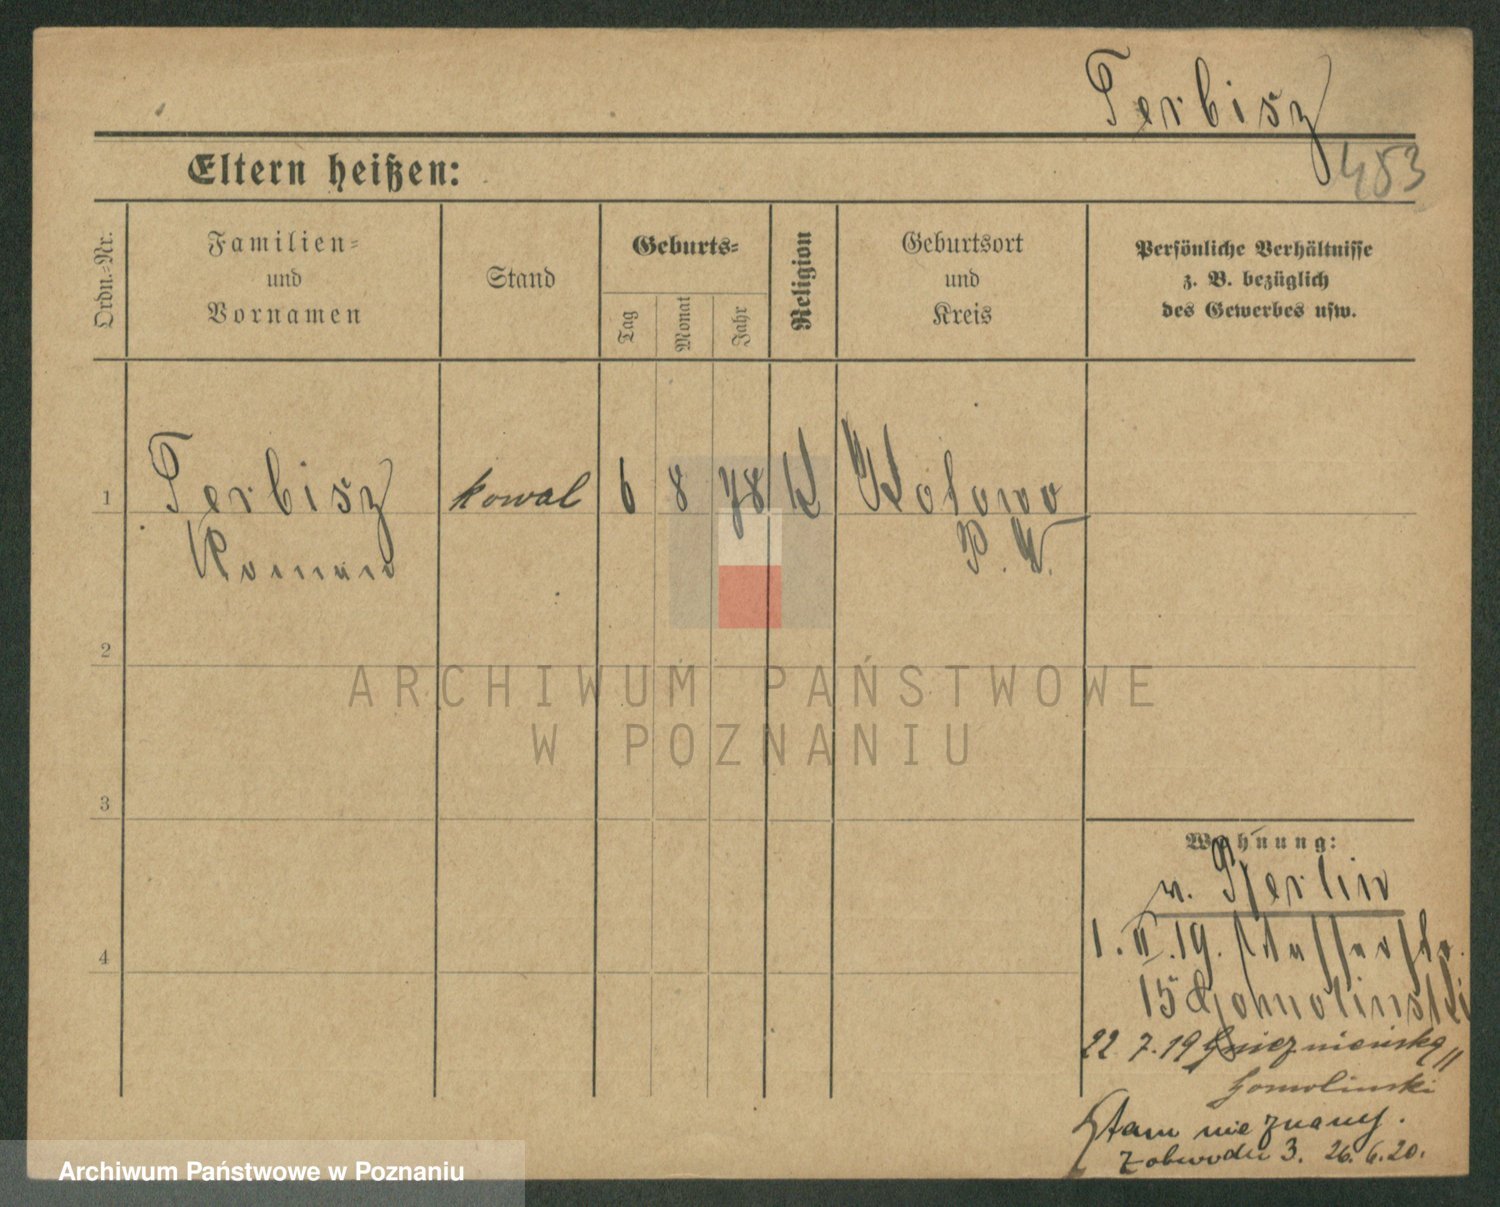 Terbisz
453
Eltern heißen:
Ordn.=Nr.
Familien=
und
Vornamen
Stand
Geburts=
Tag
Monat
Jahr
Religion
Geburtsort
und
Kreis
Persönliche Verhältnisse
z. B. bezüglich
des Gewerbes usw.
1 Terbisz kowal 6 8 78 K
Roman
P. W.
2
3
4
Wohnung:
v. Berlin
1. II. 19.
15 Gomolinski
22 7. 19 Gnieznieńska 11
Gomolinski
tam nie znany.
Z obwodu 3. 26. 6. 20.
ARCHIWUM PAŃSTWOWE
W POZNANIU
Archiwum Państwowe w Poznaniu